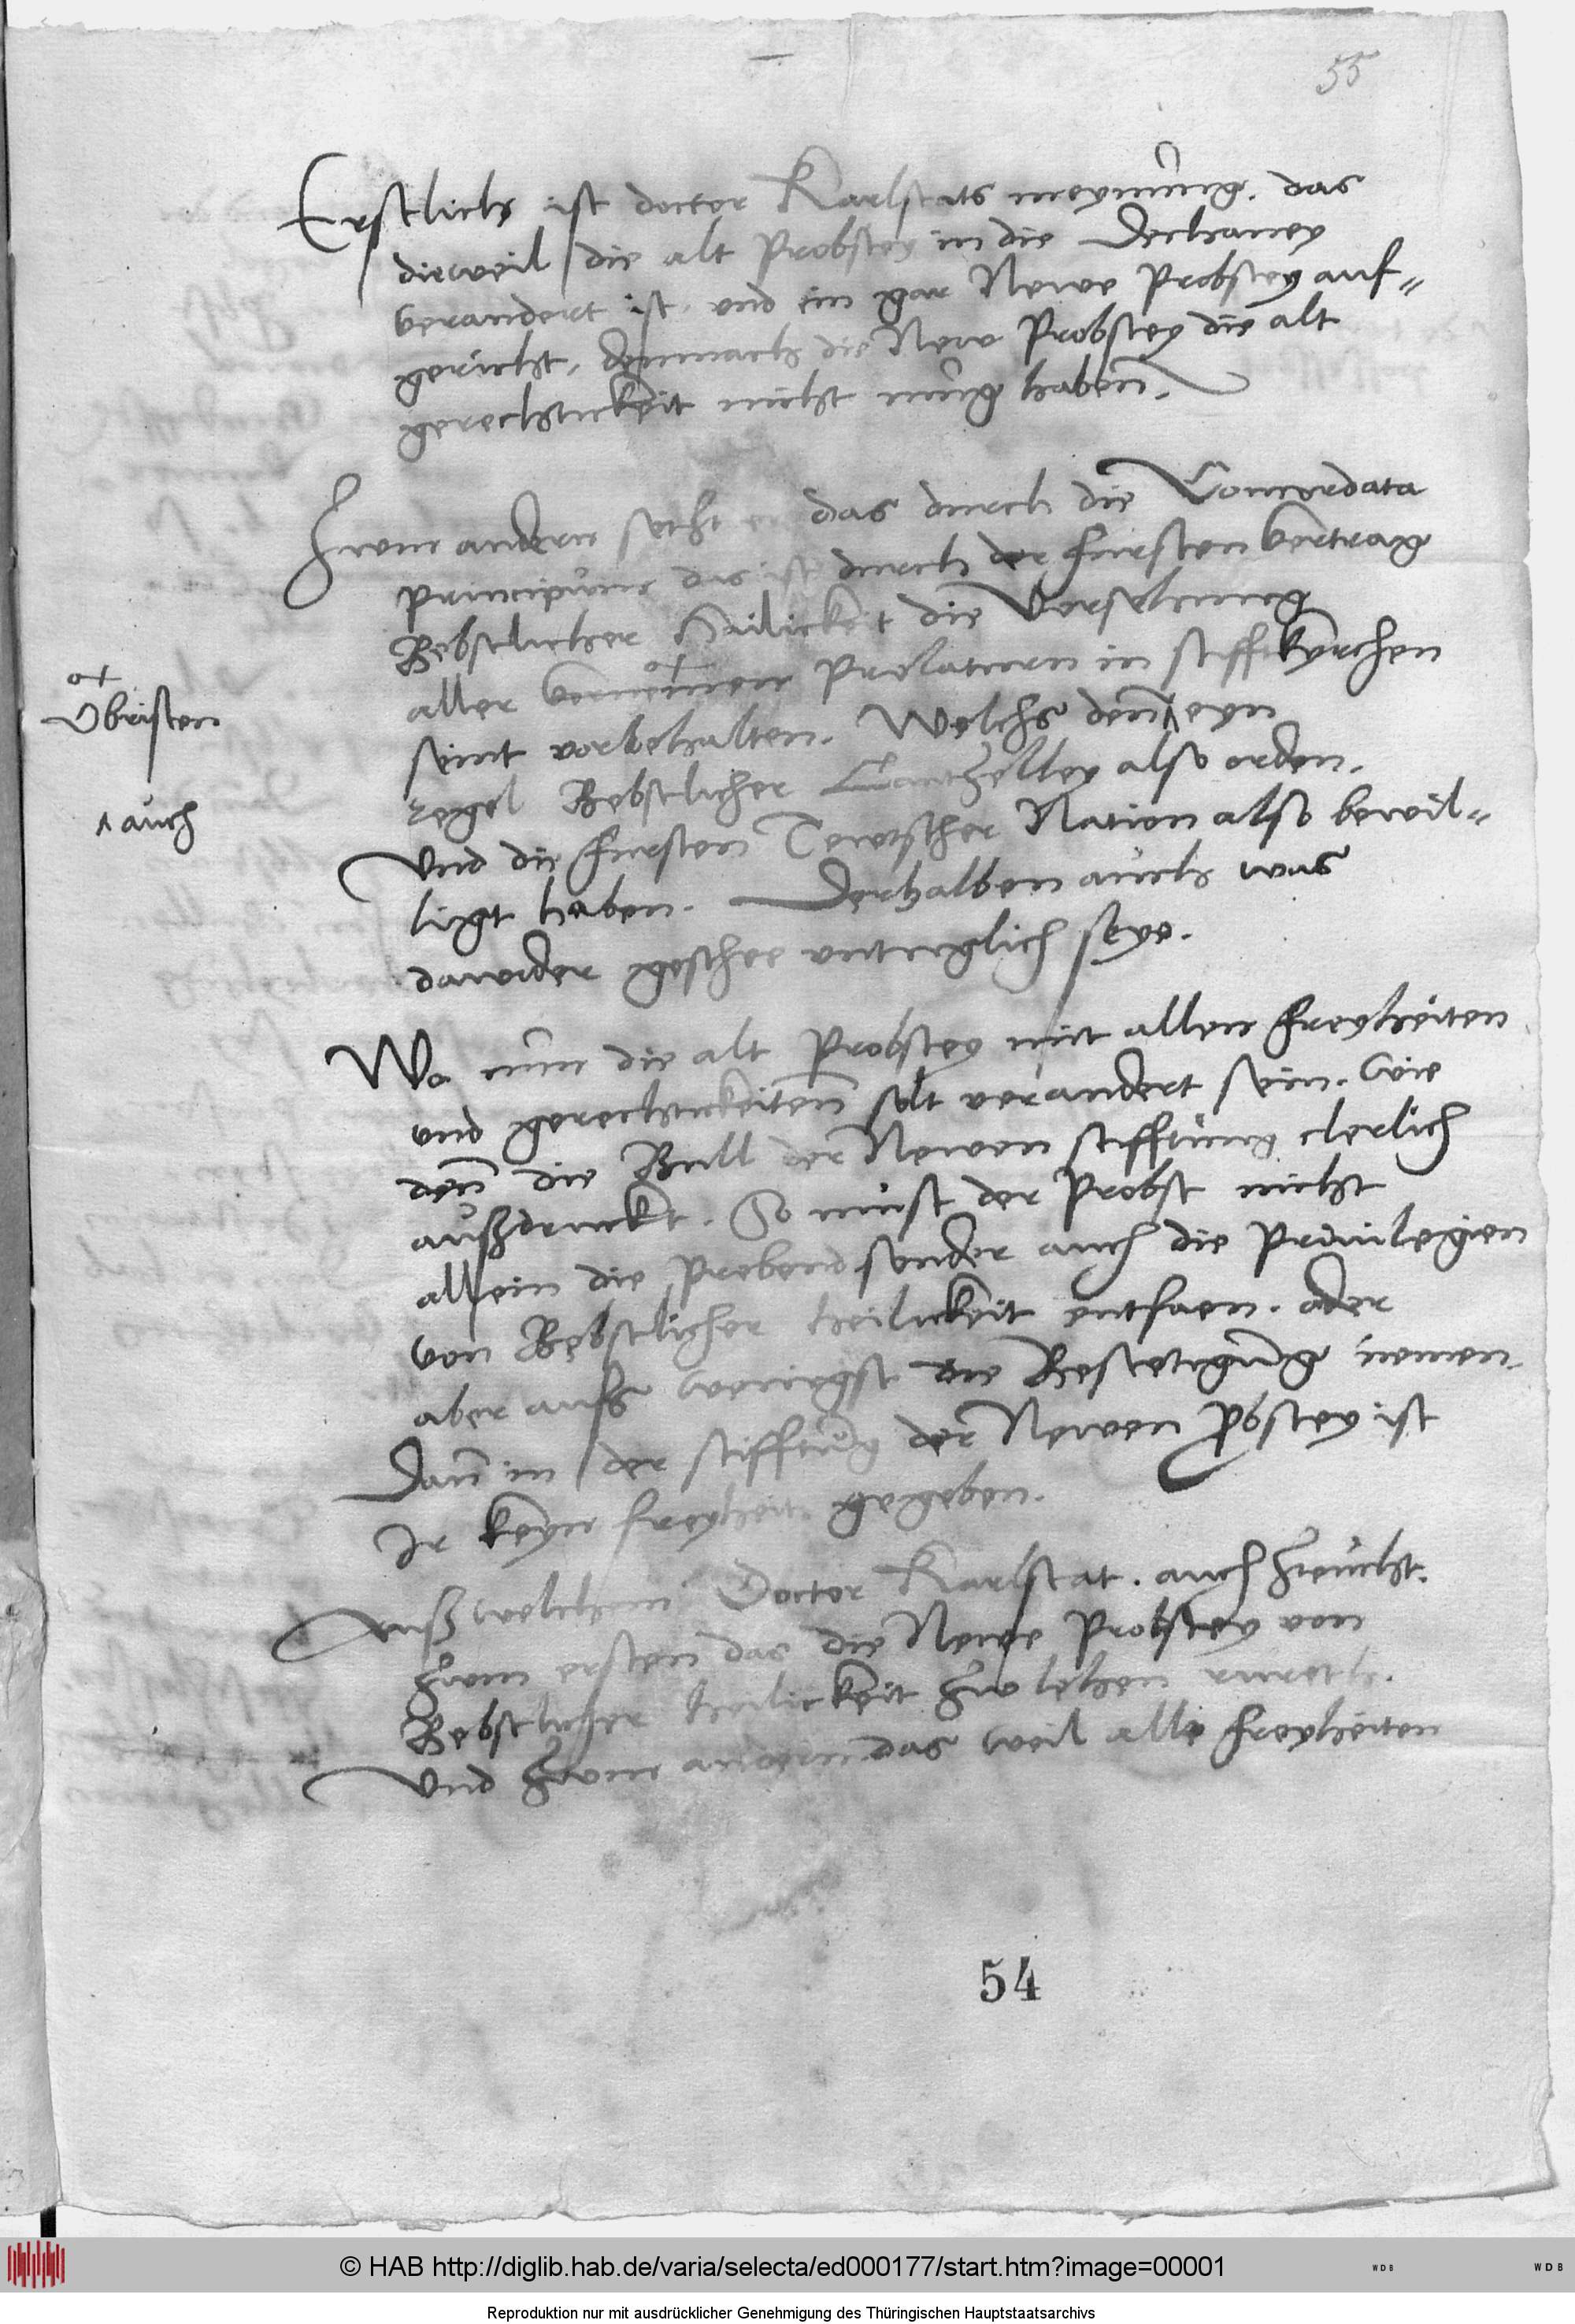 55
Erstlich ist doctor Karlstats meynung. das
dieweil die alt Probstey in die Dechaney
verandert ist. und ein gar Newe Probstey auf-
gericht, demnach die New Probstey die alt
gerechtickeit nicht mug haben.
Zwm andern setzt er das durch die Concordata
principum das ist durch der fursten vertrag
Bebstlicher Heilickeit die Vorsehung
aller vornemen Prelaturn in stifftkyrchen
Obristen
seint vorbehalten. Welchs denn eyn
regel Bebstlicher Cantzelley also orden.
auch
Und die fursten Tewtscher Nation also bewil-
ligt haben. Derhalben auch was
dawider geschee untuglich seye.
Wo nun die alt Probstey mit allen freyheiten
und gerechtickeitenn solt verandert sein. wie
denn die Bull der Newen stifftung clerlich
außdruckt. So must der Probst nicht
allein die Prebend sonder auch die Priuilegien
von Bebstlicher heilickeit entfaen. oder
aber auffs wenigst die Bestetigung nemen.
Dann in der stifftung der Newen Probstey ist
Ir keyn freyheit gegeben.
Auß welchem Doctor Karlstat. auch zeucht.
Zwm ersten das die Newe Probstey von
Bebstlicher heilickeit zw lehen ruret.
Und zwm andern das weil alle freyheiten
54
© HAB http://diglib.hab.de/varia/selecta/ed000177/start.htm?image=00001
WDB
WDB
Reproduktion nur mit ausdrücklicher Genehmigung des Thüringischen Hauptstaatsarchivs